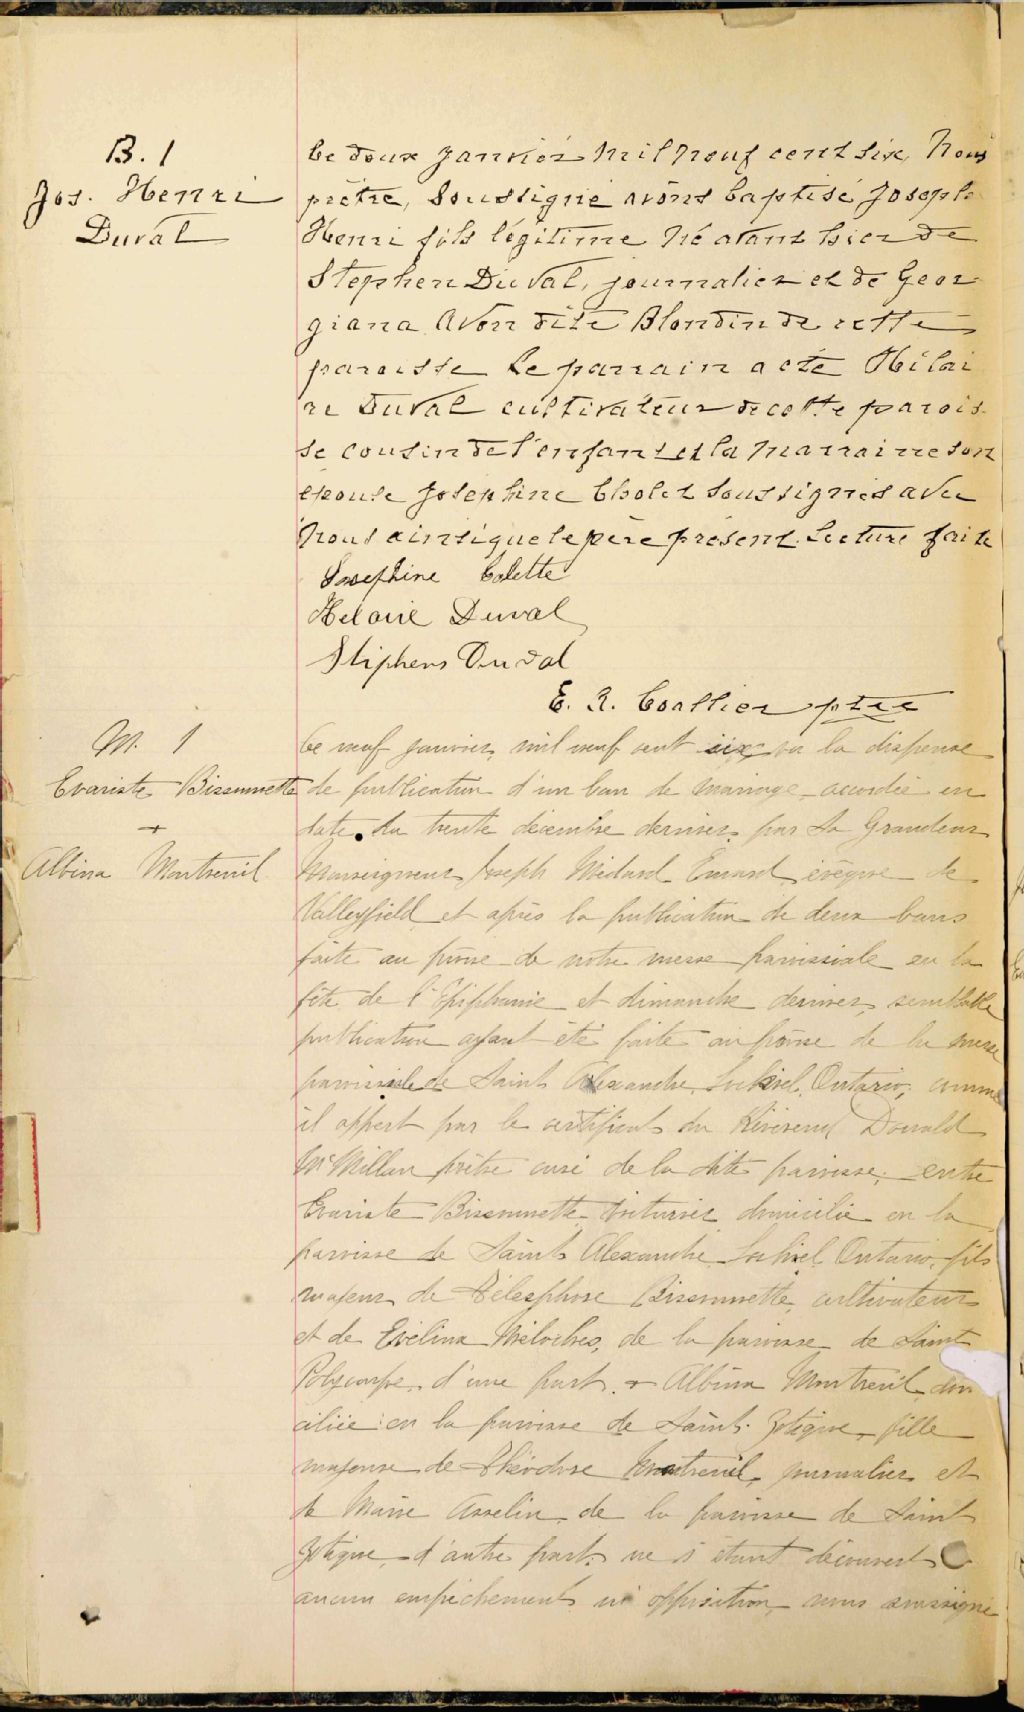 B. 1
Jos. Henri
Duval
Ce deux janvier mil neuf cent six, Nous
prêtre, soussigné avons baptisé Joseph
Henri fils légitime né avant hier de
Stephen Duval, journalier et de Geor-
giana Avon dite Blondin de cette
paroisse Le parrain a été Hilai
re Duval cultivateur de cette parois-
se cousin de l'enfant et la marraine son
épouse Josephine Cholet soussignés avec
nous ainsi que le père présent. Lecture faite
Josephine Colette
Helaire Duval
Stiphens Duval
E. R. Coallier ptre
M. 1
Evariste Bissonnette
+
Albina Montreuil
Ce neuf janvier, mil neuf cent six vu la dispense
de publication d'un ban de mariage accordée en
date du trente décembre dernier par Sa Grandeur
Monseigneur Joseph Médard Emard évêque de
Valleyfield et après la publication de deux bans
faite au prône de notre messe paroissiale en la
fête de l'Epiphanie et dimanche dernier, semblable
publication ayant été faite au prône de la messe
paroissiale de Saint Alexandre, Lochiel, Ontario, comme
il appert par le certificat du Révérend Donald
McMillan prêtre curé de la dite paroisse, entre
Evariste Bissonnette domicilié en la
paroisse de Saint Alexandre Lochiel Ontario, fils
majeur de Télesphore Bissonnette, cultivateur
et de Evélina Méloches, de la paroisse de Saint
Polycarpe, d'une part, + Albina Montreuil, dom
ciliée en la paroisse de Saint Zotique, fille
majeure de Théodore Montreuil, journalier et
de Marie Asselin de la paroisse de Saint
Zotique, d'autre part; ne s'étant découvert
aucun empêchement ni opposition, nous soussigné